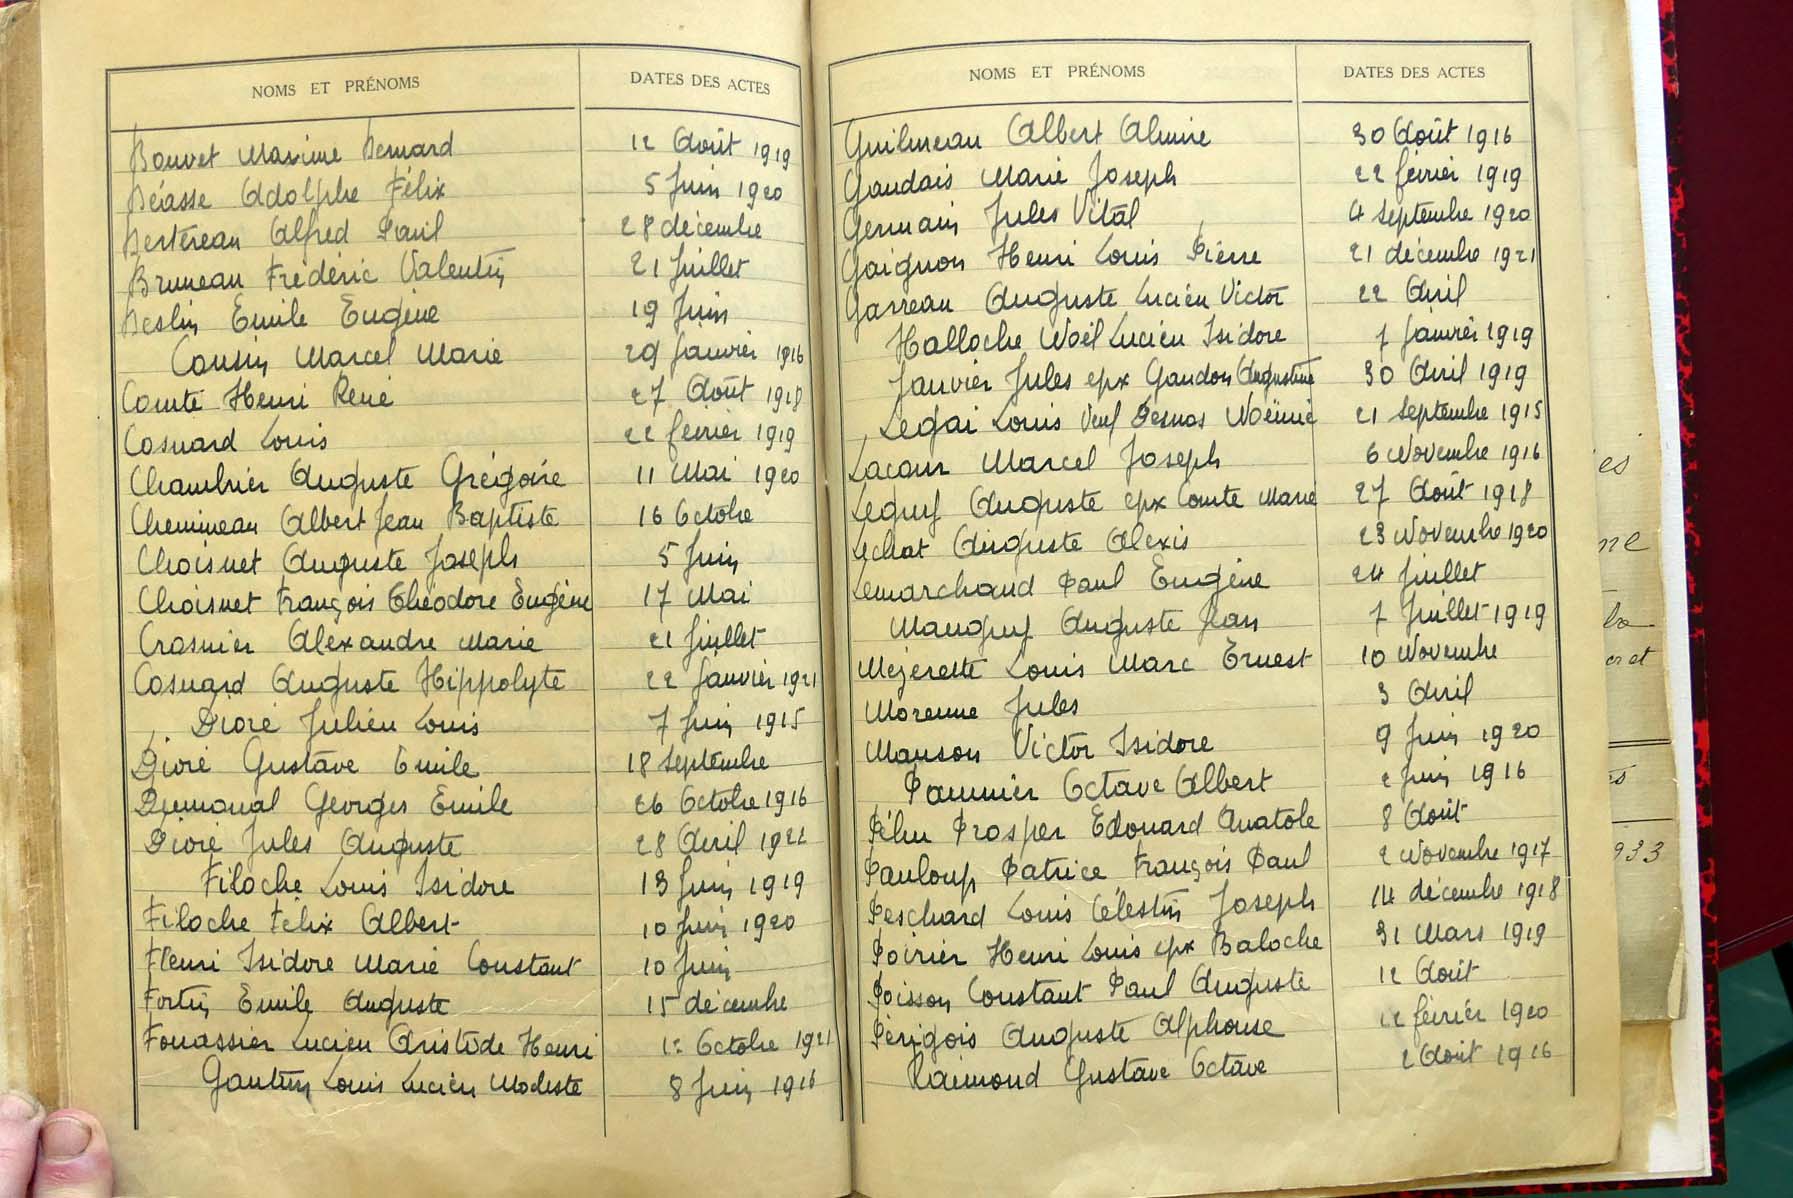 NOMS ET PRÉNOMS DATES DES ACTES
Bouvet Maxime Bernard 12 Août 1919
Béasse Adolphe Félix 5 Juin 1920
Bertereau Alfred Paul 28 décembre
Bruneau Frédéric Valentin 21 Juillet
Beslin Emile Eugène 19 Juin
Cousin Marcel Marie 29 Janvier 1916
Comte Henri René 27 Août 1918
Cosnard Louis 22 février 1919
Chambrier Auguste Grégoire 11 Mai 1920
Chemineau Albert Jean Baptiste 16 Octobre
Choisnet Auguste Joseph 5 Juin
Choisnet François Théodore Eugène 17 Mai
Crosnier Alexandre Marie 21 Juillet
Cosnard Auguste Hippolyte 22 Janvier 1921
Dioré Julien Louis 7 Juin 1915
Dioré Gustave Emile 18 Septembre
Georges Emile 26 Octobre 1916
Dioré Jules Auguste 28 Avril 1921
Filoche Louis Isidore 13 Juin 1919
Filoche Félix Albert 10 Juin 1920
Fleuri Isidore Marie Constant 10 Juin
Fortin Emile Auguste 15 décembre
Fouassier Lucien Aristide Henri 12 Octobre 1921
Gautun Louis Lucien Modeste 8 Juin 1916
NOMS ET PRÉNOMS DATES DES ACTES
Guilmeau Albert Almire 30 Août 1916
Gaudais Marie Joseph 22 février 1919
Germain Jules Vital 4 Septembre 1920
Gaignon Henri Louis Pierre 21 décembre 1921
Garreau Auguste Lucien Victor 22 Avril
Halloche Noël Lucien Isidore 7 Janvier 1919
Janvier Jules epx Gaudon Augustine 30 Avril 1919
Legai Louis Veuf Desnos Noëmie 21 Septembre 1915
Lacour Marcel Joseph 6 Novembre 1916
Leguy Auguste epx Comte Marie 27 Août 1918
Lechat Auguste Alexis 23 Novembre 1920
Lemarchand Paul Eugène 24 Juillet
Mauguy Auguste Jean 7 Juillet 1919
Mejerette Louis Marc Ernest 10 Novembre
Morenne Jules 3 Avril
Manson Victor Isidore 9 Juin 1920
Paumier Octave Albert 2 Juin 1916
Prosper Edouard Anatole 8 Août
Pauloup Patrice François Paul 2 Novembre 1917
Peschard Louis Célestin Joseph 14 décembre 1918
Poirier Henri Louis epx Baloche 31 Mars 1919
Poisson Constant Paul Auguste 12 Août
Périgois Auguste Alphonse 12 février 1920
Raimond Gustave Octave 2 Août 1916
es
ne
933